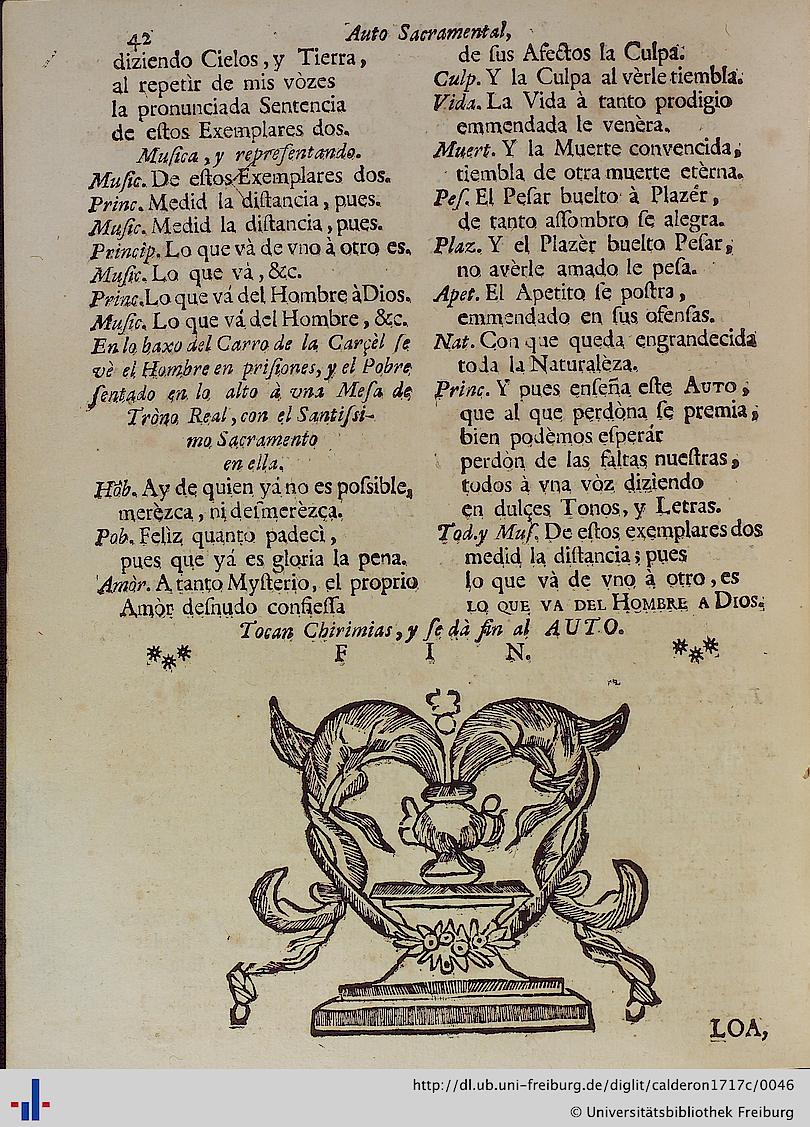 42
Auto Sacramental,
diziendo Cielos, y Tierra,
al repetìr de mis vòzes
la pronunciada Sentencia
de eſtos Exemplares dos.
Muſica, y repreſentando.
Muſic. De eſtos Exemplares dos.
Princ. Medid la diſtancia, pues.
Muſic. Medid la diſtancia, pues.
Princip. Lo que và de vno à otro es.
Muſic. Lo que vá, &c.
Princ. Lo que vá del Hombre à Dios.
Muſic. Lo que vá del Hombre, &c.
En lo baxo del Carro de la Carçèl ſe
vè el Hombre en priſiones, y el Pobre
ſentado en lo alto à vna Meſa de
Tròno Real, con el Santiſsi-
mo Sacramento
en ella.
Hõb. Ay de quien yá no es poſsible,
merèzca, ni deſmerèzca.
Pob. Felìz quanto padecì,
pues que yá es gloria la pena.
Amòr. A tanto Myſterio, el proprio
Amòr deſnudo confieſſa
de ſus Afectos la Culpa.
Culp. Y la Culpa al vèrle tiembla.
Vida. La Vida à tanto prodigio
emmendada le venèra.
Muert. Y la Muerte convencida,
tiembla de otra muerte etèrna.
Peſ. El Peſar buelto à Plazér,
de tanto aſſombro ſe alegra.
Plaz. Y el Plazèr buelto Peſar,
no avèrle amado le peſa.
Apet. El Apetito ſe poſtra,
emmendado en ſus ofenſas.
Nat. Con que queda engrandecida
toda la Naturalèza.
Princ. Y pues enſeña eſte AUTO,
que al que perdòna ſe premia,
bien podèmos eſperár
perdòn de las faltas nueſtras,
todos à vna vòz diziendo
en dulçes Tonos, y Letras.
Tod. y Muſ. De eſtos exemplares dos
medid la diſtancia; pues
lo que và de vno à otro, es
LO QUE VA DEL HOMBRE A DIOS.
Tocan Chirimias, y ſe dà fin al AUTO.
F I N.
LOA,
http://dl.ub.uni-freiburg.de/diglit/calderon1717c/0046
© Universitätsbibliothek Freiburg